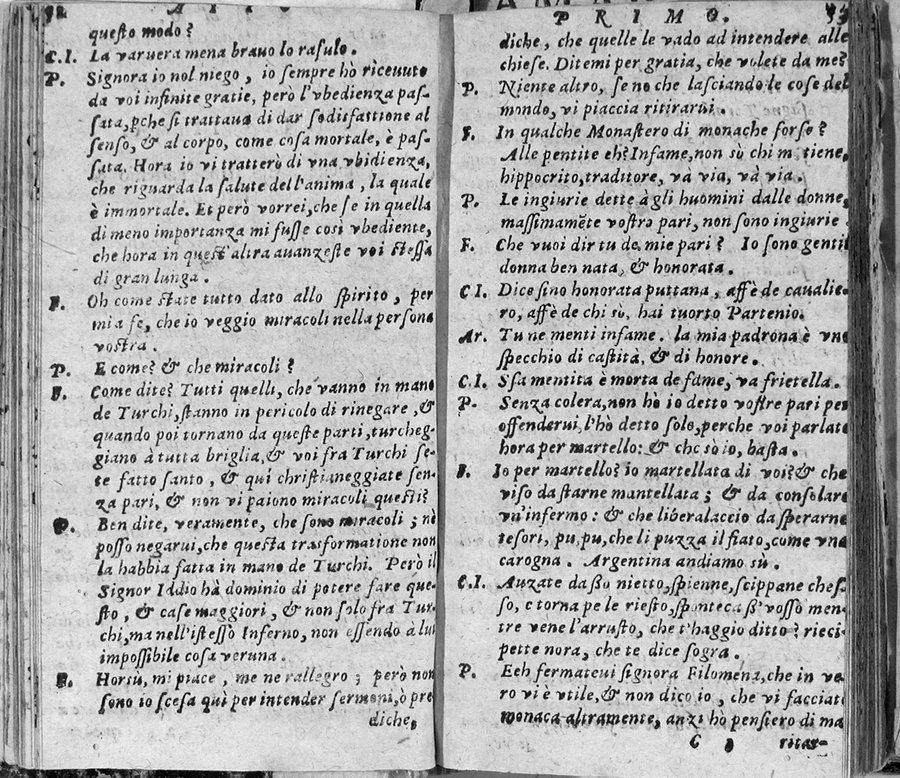 52 ATTO
questo modo?
C.I. La varuera mena brauo lo rasulo.
P. Signora io nol niego, io sempre hò riceuuto
da voi infinite gratie, però l'vbedienza pas-
sata, pche si trattaua di dar soditfattione al
senso, & al corpo, come cosa mortale, è pas-
sata. Hora io vi tratterò di vna vbidienza,
che riguarda la salute dell'anima, la quale
è immortale. Et però vorrei, che se in quella
di meno importanza mi fusse cosi vbediente,
che hora in quest' altra auanzeste voi stessa
di gran lunga.
F. Oh come state tutto dato allo spirito, per
mia fe, che io veggio miracoli nella persona
vostra.
P. E come? & che miracoli?
F. Come dite? Tutti quelli, che vanno in mano
de Turchi, stanno in pericolo di rinegare, &
quando poi tornano da queste parti, turcheg-
giano à tutta briglia, & voi fra Turchi se-
te fatto santo, & qui christianeggiate sen-
za pari, & non vi paiono miracoli questi?
P. Ben dite, veramente, che sono miracoli; nè
posso negarui, che questa trasformatione non
la habbia fatta in mano de Turchi. Però il
Signor Iddio hà dominio di potere fare que-
sto, & case maggiori, & non solo fra Tur-
chi, ma nell'istesso Inferno, non essendo à lui
impossibile cosa veruna.
F. Horsù, mi piace, me ne rallegro; però non
sono io scesa quì per intender sermoni, ò pre
diche,
PRIMO. 53
diche, che quelle le vado ad intendere alle
chiese. Ditemi per gratia, che volete da me?
P. Niente altro, se no che lasciando le cose del
mondo, vi piaccia ritirarui.
F. In qualche Monastero di monache forse?
Alle pentite eh? Infame, non sò chi m tiene,
hippocrito, traditore, và via, và via.
P. Le ingiurie dette à gli huomini dalle donne,
massimamēte vostre pari, non sono ingiurie
F. Che vuoi dir tu de mie pari? Io sono gentil
donna ben nata, & honorata.
C I. Dice sino honorata puttana, affè de caualie-
ro, affè de chi sò, hai tuorto Partenio.
Ar. Tu ne menti infame. la mia padrona è vno
specchio di castità, & di honore.
C.I. Ssa mentita è morta de fame, va frietella.
P. Senza colera, non ho io detto vostre pari per
offenderui, l'hò detto solo, perche voi parlate
hora per martello: & che sò io, basta.
F. Io per martello? io martellata di voi? & che
viso da starne mantellata; & da consolare
vn'infermo: & che liberalaccio da sperarne
tesori, pu, pu, che li puzza il fiato, come vna
carogna. Argentina andiamo sù.
C.I. Auzate da ßo nietto, spienne, scippane ches-
so, e torna pe le riesto, sponteca ß'vosso men-
tre vene l'arrusto, che t'haggio ditto? rieci-
pette nora, che te dice sogra.
P. Eeh fermateui signora Filomena, che in ve-
ro vi è vtile, & non dico io, che vi facciate
monaca altramente, anzi hò pensiero di ma
C ritar-